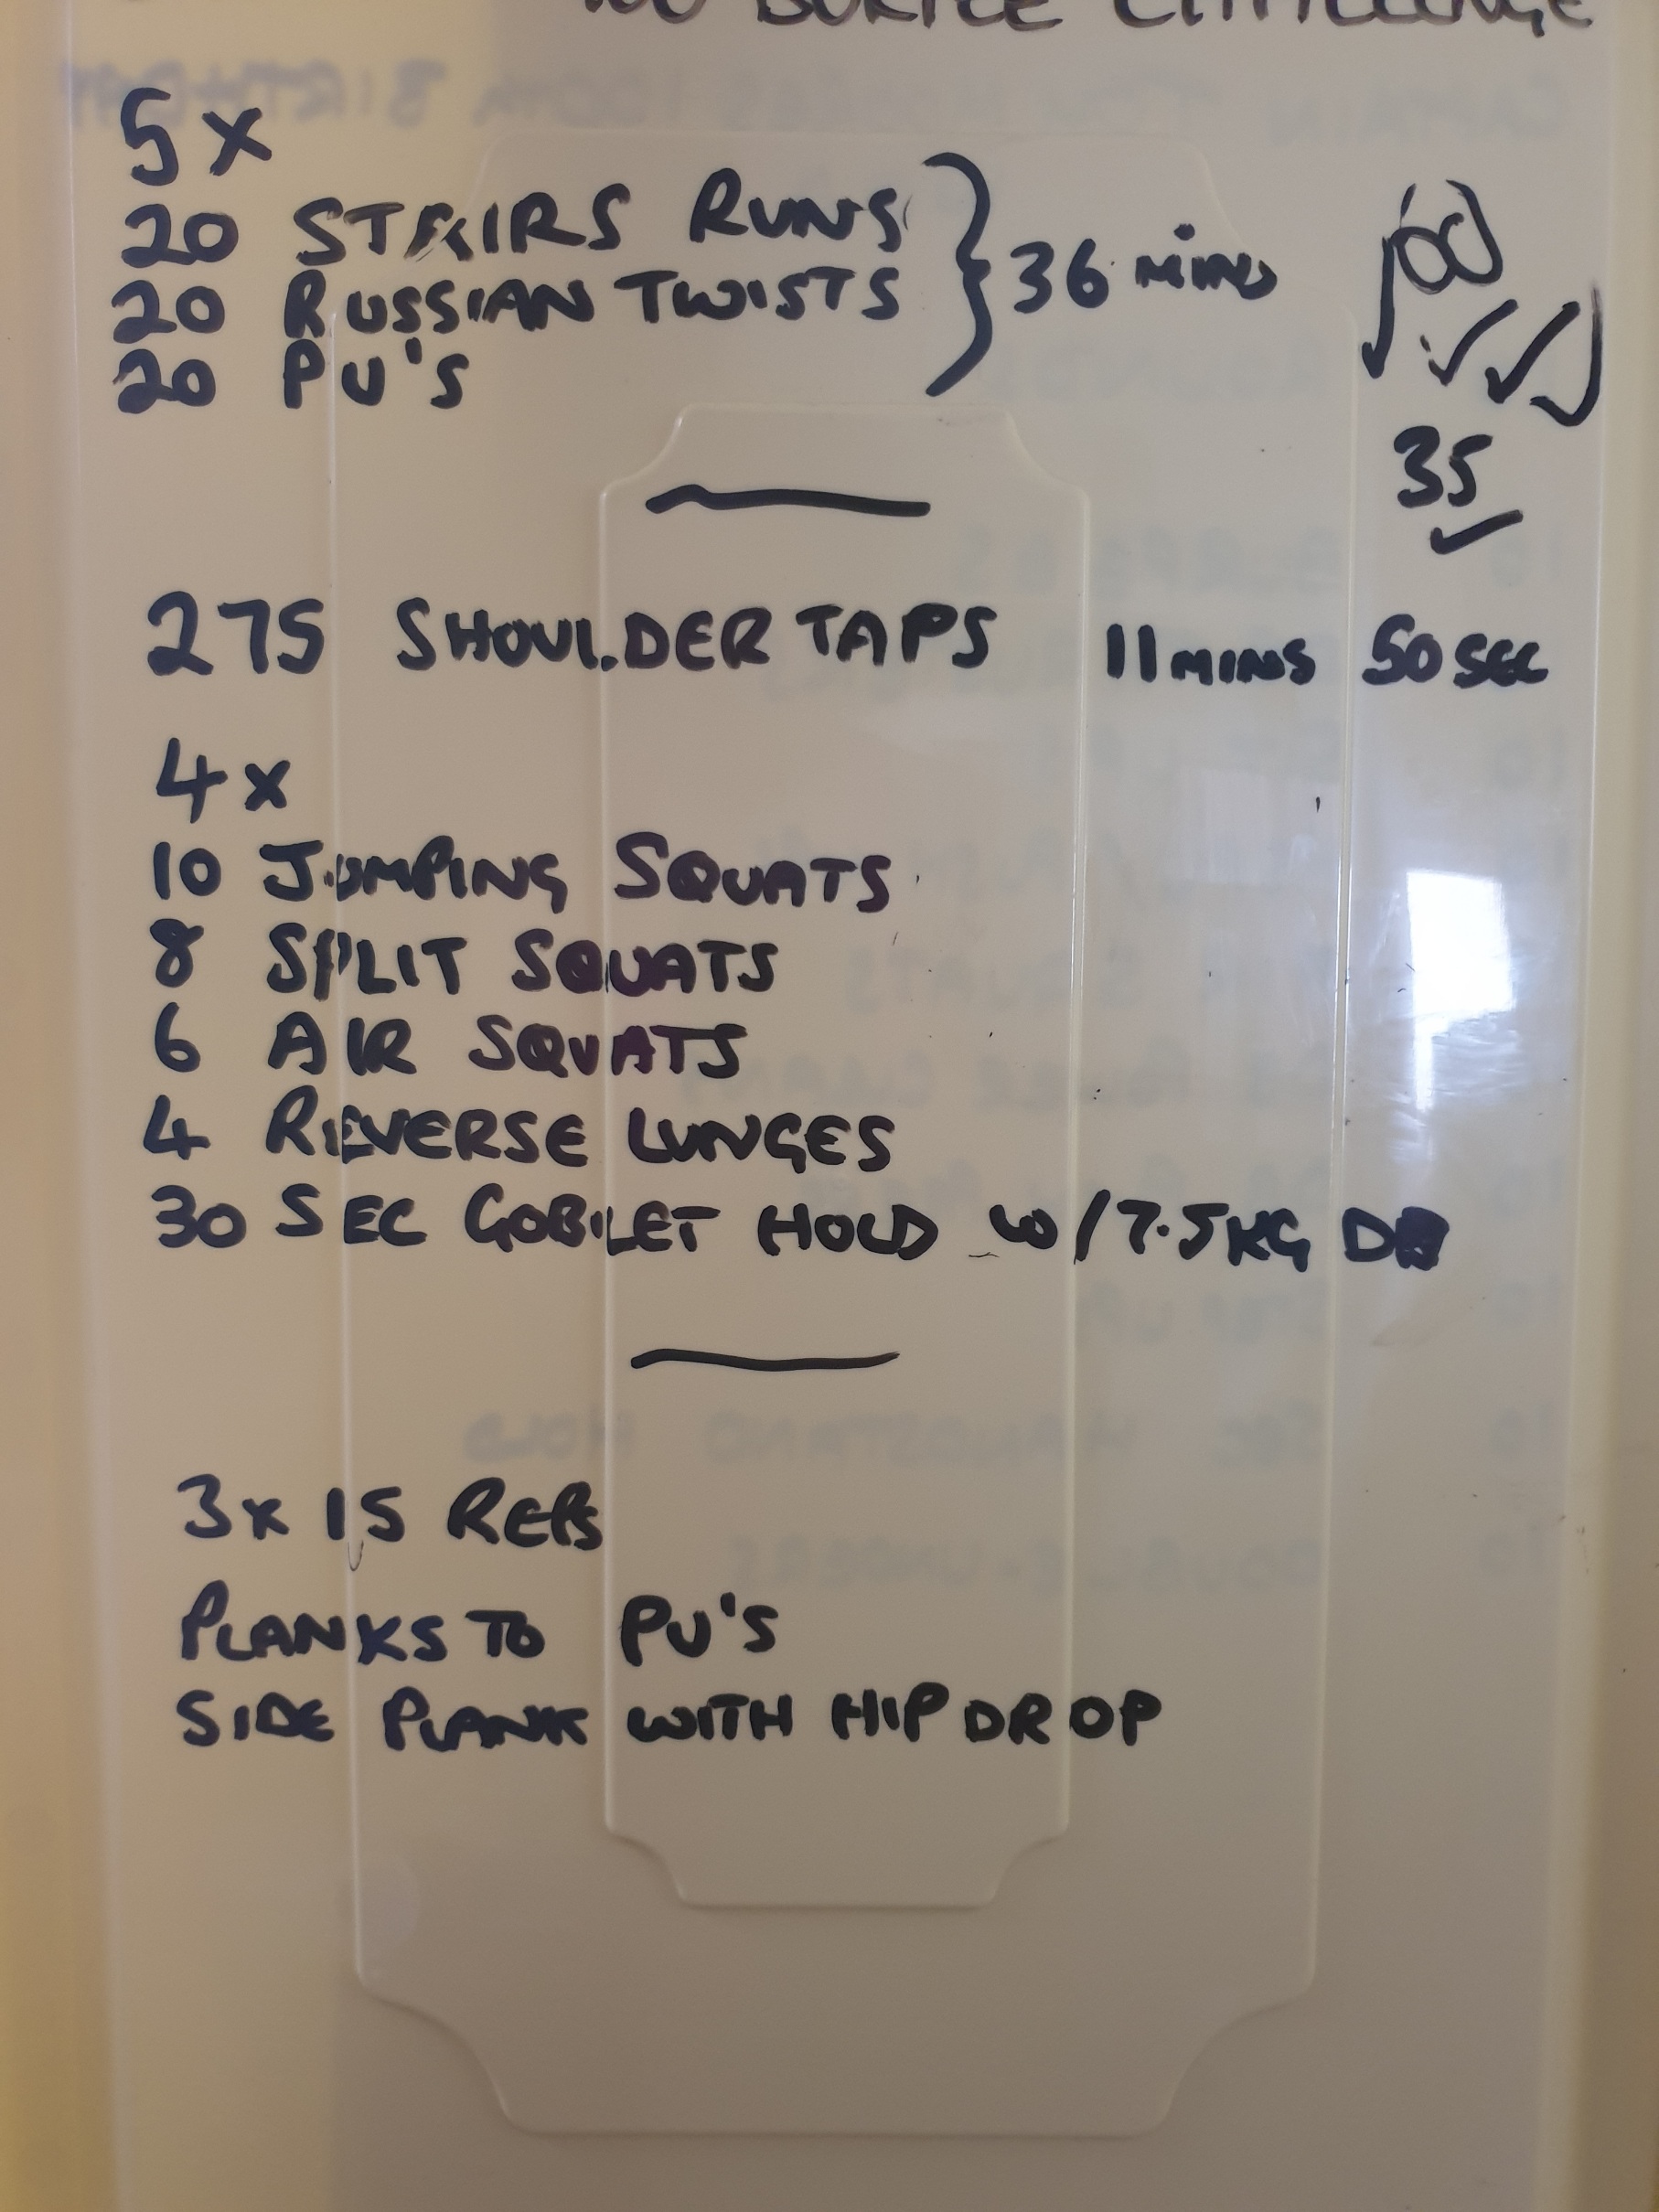 100 BURPEE CHALLENGE
5x
20 STAIRS RUNS
20 RUSSIAN TWISTS
20 PU'S
36 MINS
35
275 SHOULDER TAPS 11 MINS 50 SEC
4x
10 JUMPING SQUATS
8 SPLIT SQUATS
6 AIR SQUATS
4 REVERSE LUNGES
30 SEC GOBLET HOLD W/7.5KG DB
3x 15 REPS
PLANKS TO PU'S
SIDE PLANK WITH HIP DROP